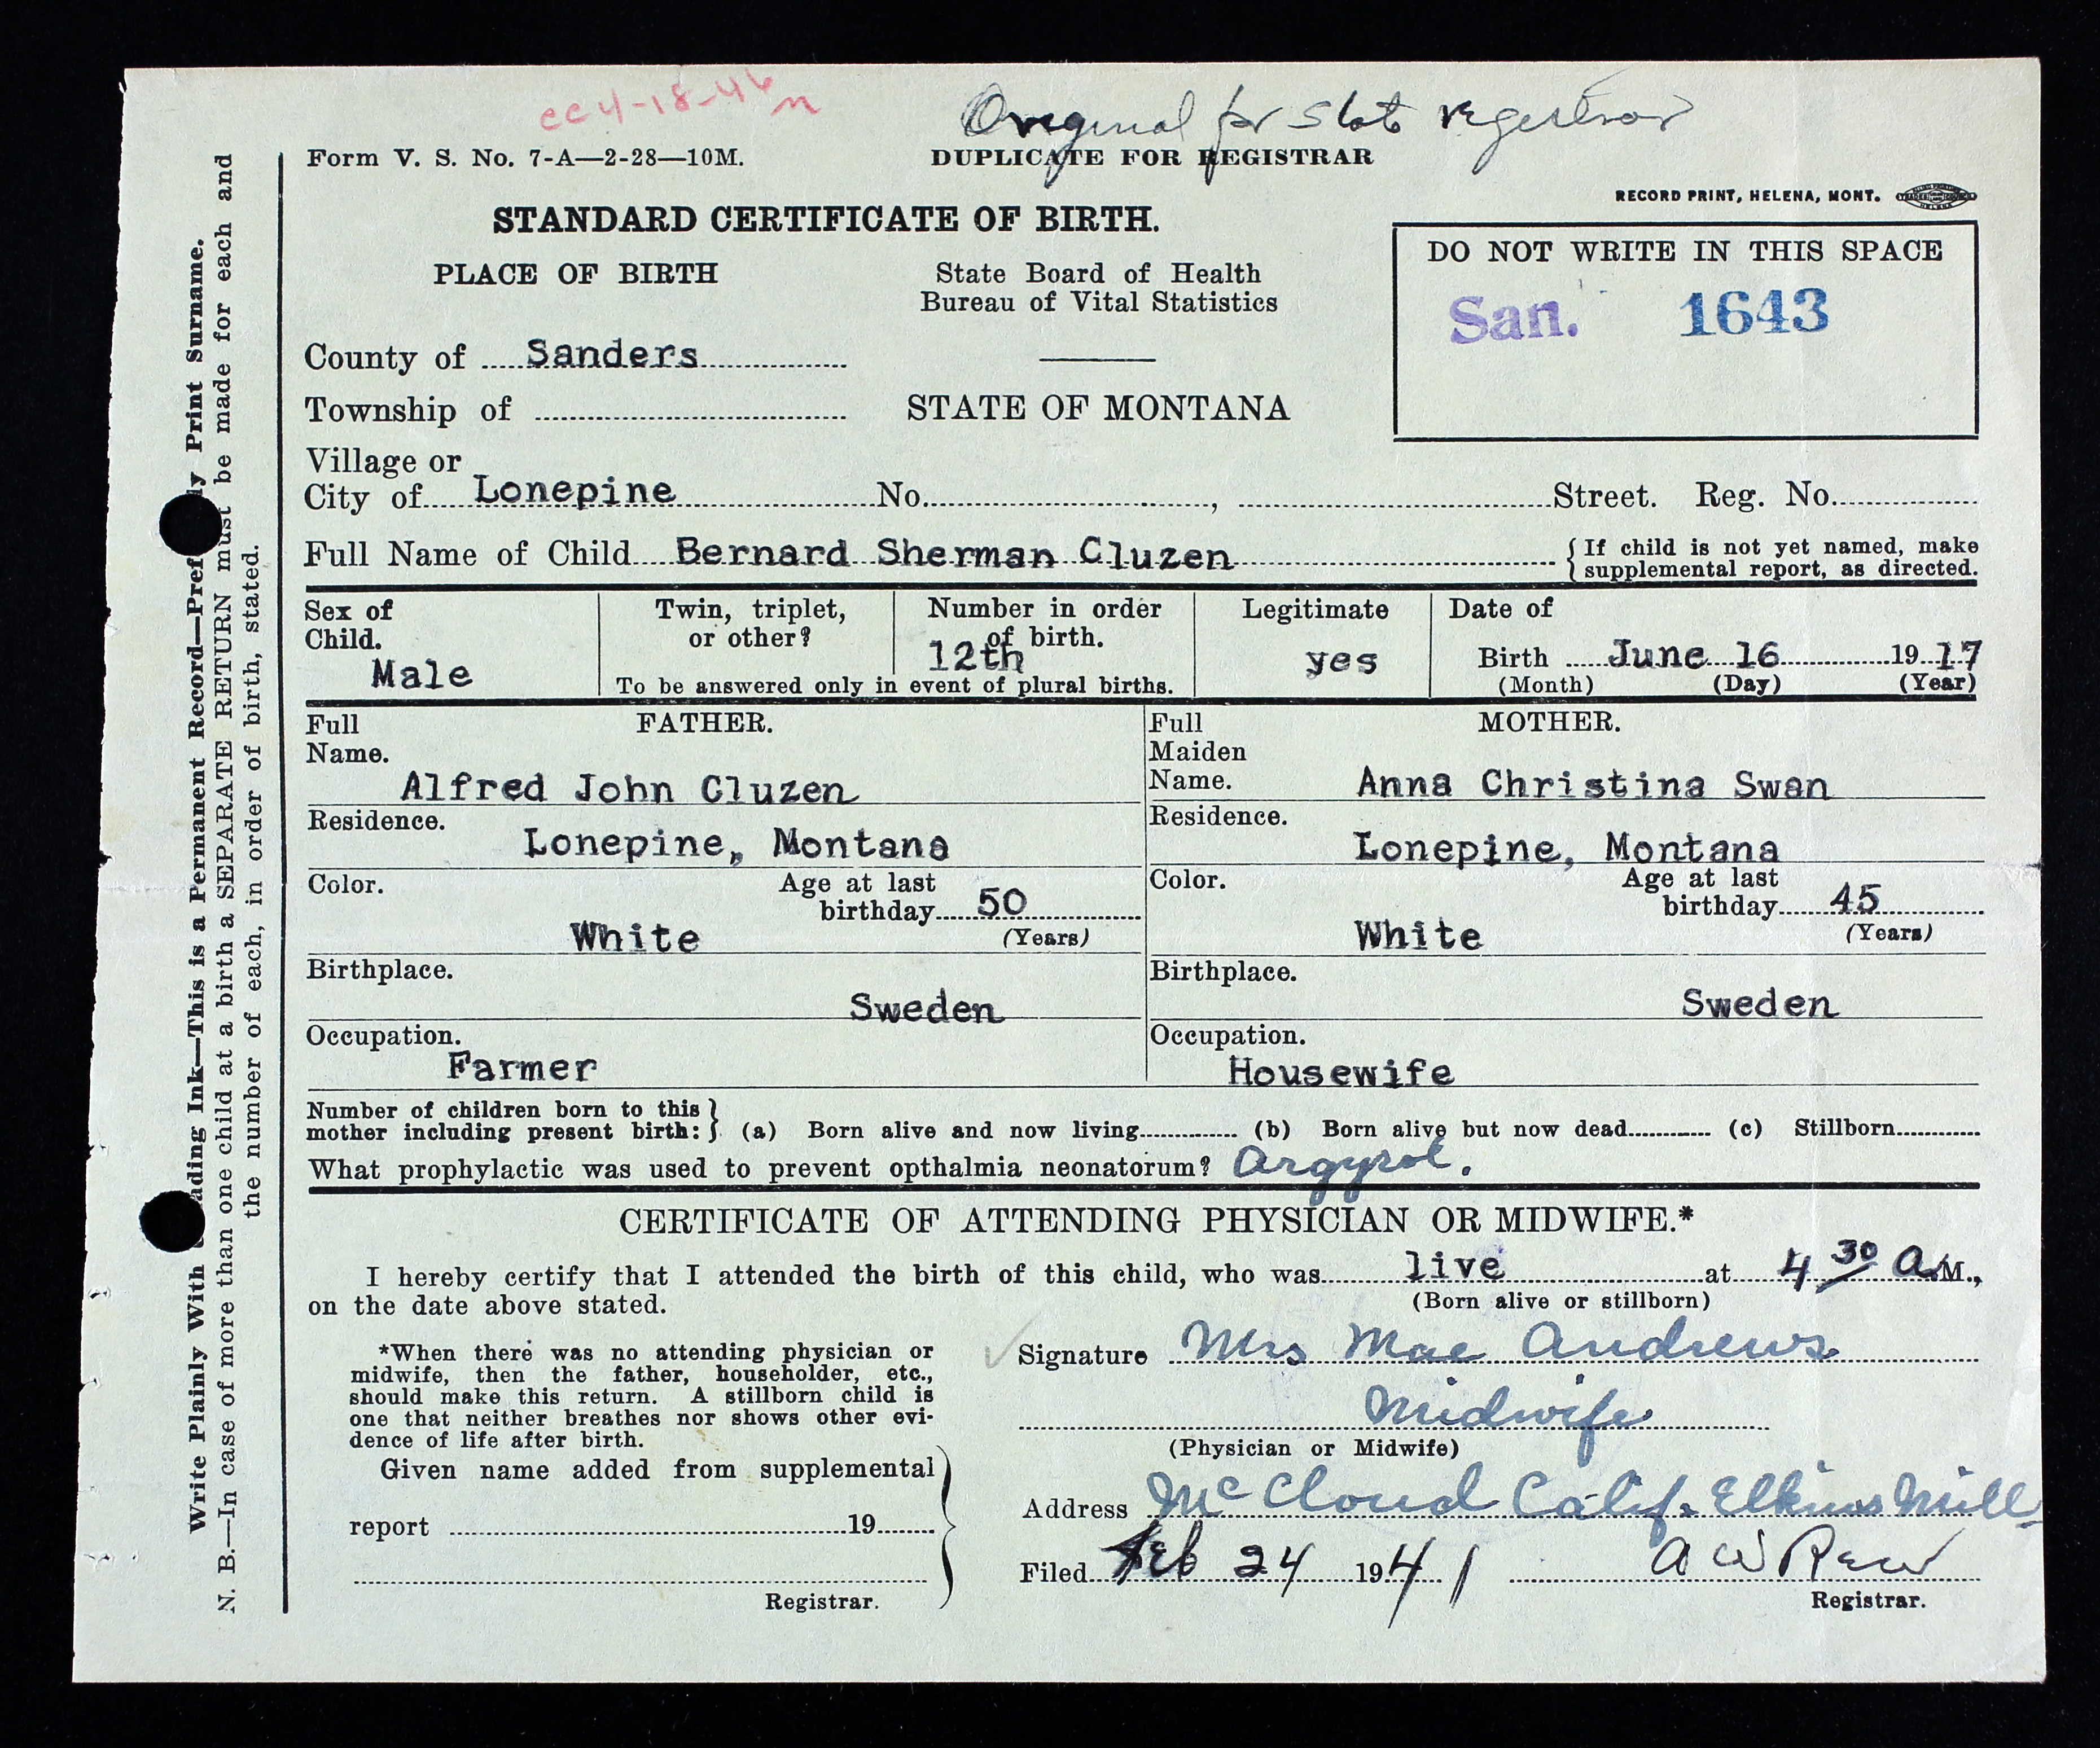 cc 4-18-46 m
Original for State registrar
Form V. S. No. 7-A—2-28—10M.
DUPLICATE FOR REGISTRAR
RECORD PRINT, HELENA, MONT.
STANDARD CERTIFICATE OF BIRTH.
DO NOT WRITE IN THIS SPACE
San. 1643
PLACE OF BIRTH
State Board of Health
Bureau of Vital Statistics
County of Sanders
Township of
STATE OF MONTANA
Village or
City of Lonepine No. , Street. Reg. No.
Full Name of Child Bernard Sherman Cluzen
{If child is not yet named, make
supplemental report, as directed.
Sex of
Child.
Male
Twin, triplet,
or other?
Number in order
of birth.
12th
To be answered only in event of plural births.
Legitimate
yes
Date of
Birth June 16 1917
(Month) (Day) (Year)
FATHER.
Full
Name.
Alfred John Cluzen
Residence.
Lonepine, Montana
Color.
White
Age at last
birthday 50
(Years)
Birthplace.
Sweden
Occupation.
Farmer
MOTHER.
Full
Maiden
Name. Anna Christina Swan
Residence.
Lonepine, Montana
Color.
White
Age at last
birthday 45
(Years)
Birthplace.
Sweden
Occupation.
Housewife
Number of children born to this
mother including present birth: } (a) Born alive and now living (b) Born alive but now dead (c) Stillborn
What prophylactic was used to prevent opthalmia neonatorum? Argyrol.
CERTIFICATE OF ATTENDING PHYSICIAN OR MIDWIFE.*
I hereby certify that I attended the birth of this child, who was live at 4 30 A.M.,
on the date above stated.
(Born alive or stillborn)
*When there was no attending physician or
midwife, then the father, householder, etc.,
should make this return. A stillborn child is
one that neither breathes nor shows other evi-
dence of life after birth.
Given name added from supplemental
report 19
Registrar.
Signature Mrs Mae Andrews
Midwife
(Physician or Midwife)
Address McCloud Calif. Elkins Mill
Filed Feb 24 1941 A W Rew
Registrar.
Write Plainly With ading Ink—This is a Permanent Record—Pref ly Print Surname.
N. B.—In case of more than one child at a birth a SEPARATE RETURN must be made for each and
the number of each, in order of birth, stated.